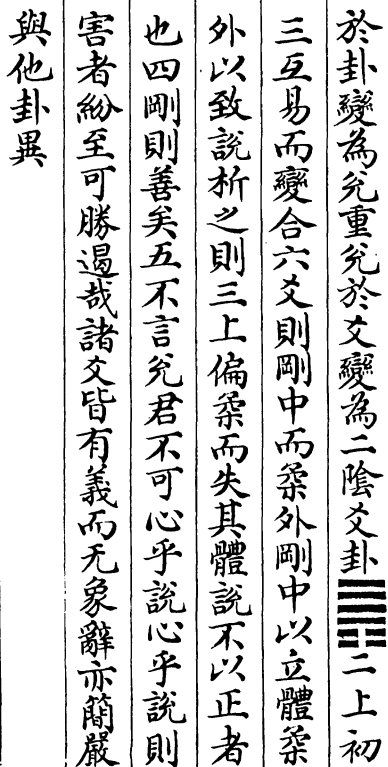 於卦變為兊重兊於爻變為二陰爻卦二上初
三互易而變合六爻則剛中而柔外剛中以立體柔
外以致說析之則三上偏柔而失其體說不以正者
也四剛則善矣五不言兊君不可心乎說心乎說則
害者紛至可勝遏哉諸爻皆有義而无象辭亦簡嚴
與他卦異